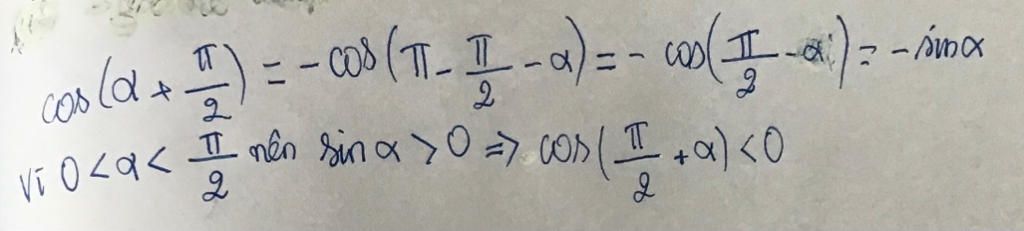 cos(α + π/2) = -cos(π - π/2 - α) = - cos(π/2 - α) = - sinα
vì 0 < α < π/2 nên sin α > 0 => cos(π/2 + α) < 0